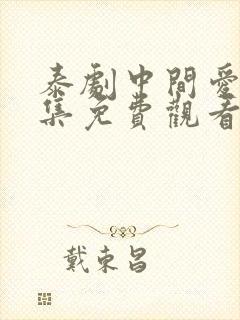 泰劇中間愛
集免費觀看
戴東昌